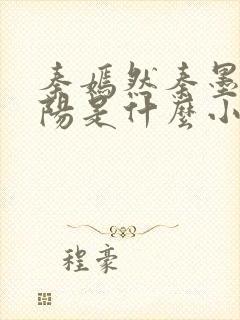 秦嫣然秦墨
陽是什麼小
程豪